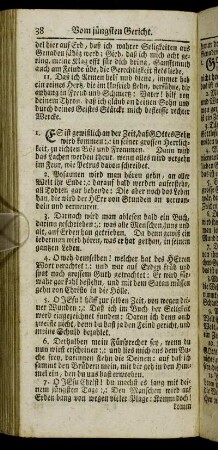 38 Vom jüngsten Gericht.
del hier auf Erd, daß ich wahrer Seligkeiten aus
Gnaden fähig werd: Gieb, daß ich auch mich
acht, meine Maaß
auch am Feinde übt, die Gerechtigkeit stets liebe.
11. Daß ich könne für dich diene, immer hab
ein reines Hertz, die im Unfried stehn, versühne, dir
anhang in Freud und Schmertz: Vater! hilf von
deinem Thron, daß ich gläub an deinen Sohn und
durch deines Geistes Stärcke mich befleisse rechter
Wercke.
1. ES ist gewißlich an der Zeit, daß GOttes Sohn
wird kommen :,: in seiner grossen Herrlich-
keit, zu richten Bös und Frommen. Dann wird
das Lachen werden theur, wenn alles wird vergehn
im Feur, wie Petrus davon schreibet.
2. Posaunen wird man hören gehn, an aller
Welt ihr Ende :,: darauf bald werden auferstehn,
all Todten gar behende: Die aber noch das Leben
han, die wird der HErr von Stunden an verwan-
deln und verneuren.
3. Darnach wird man ablesen bald ein Buch,
darinn geschrieben :,: was alle Menschen, jung und
alt, auf Erden han getrieben. Da denn gewiß ein
jederman wird hören, was er hat gethon, in seinem
gantzen Leben.
4. O weh demselben! welcher hat des HErren
Wort verachtet :,: und nur auf Erden früh und
spat nach grossem Guth getrachtet :,: Er wird für-
wahr gar kahl bestehn, und mit dem Satan müssen
gehn von Christo in die Hölle.
5. O JEsu! hilf zur selben Zeit, von wegen dei-
ner Wunden :,: Daß ich im Buch der Seligkeit
werd eingezeichnet funden: Daran ich denn auch
zweifle nicht, denn du hast ja den Feind gericht, und
meine Schuld bezahlet.
6. Derhalben mein Fürsprecher sey, wenn du
nun wirst erscheinen :,: und lies mich aus dem Bu-
che frey, darinnen stehn die Deinen: auf daß ich
sammt den Brüdern mein, mit dir geh in den Him-
mel ein, den du uns hast erworben.
7. O JEsu Christ! du machst es lang mit dei-
nem jüngsten Tage :,: Den Menschen wird auf
Erden bang von wegen vieler Plage: Komm doch!
komm